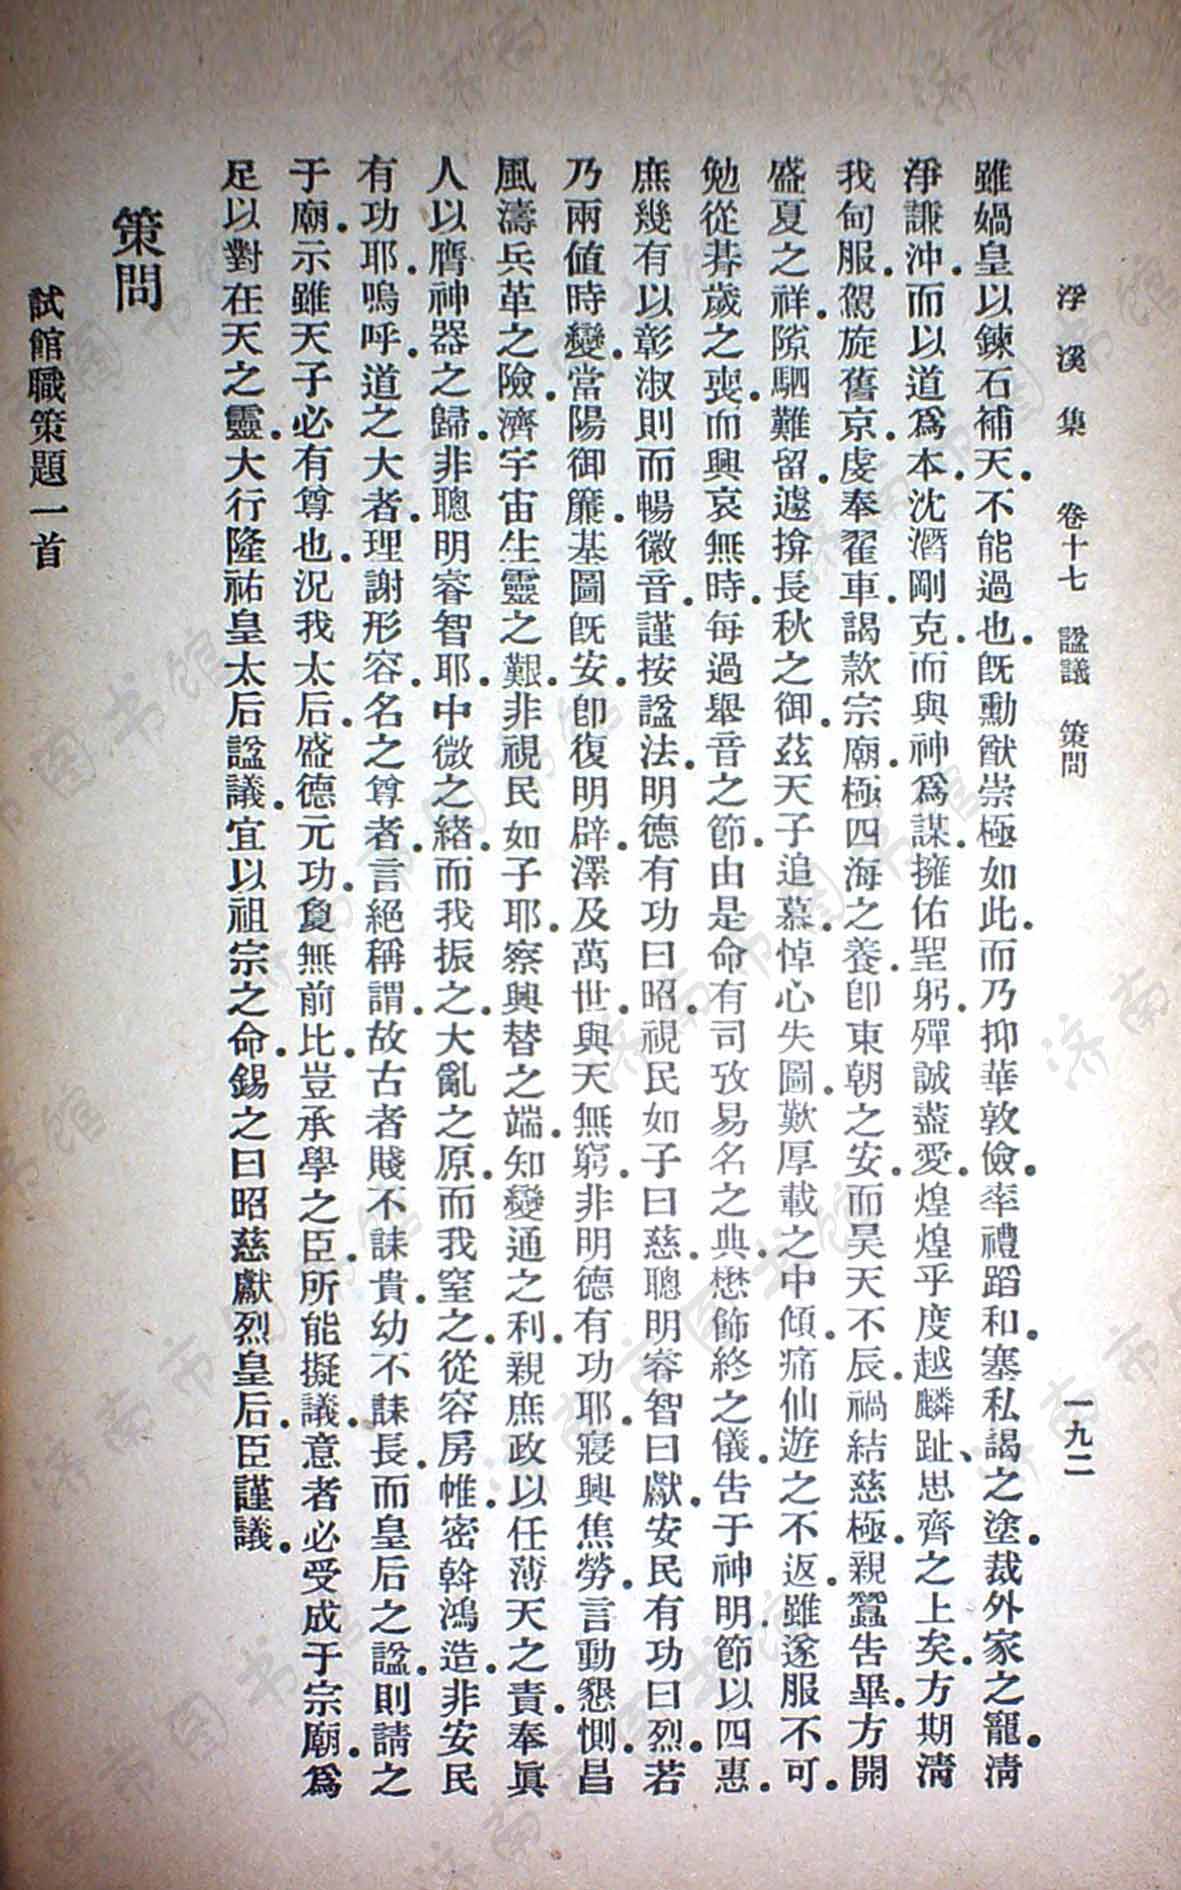 浮溪集 卷十七 諡議 策問 一九二
雖媧皇以鍊石補天。不能過也。旣勳猷崇極如此。而乃抑華敦儉。率禮蹈和。塞私謁之塗。裁外家之寵。淸
淨謙沖。而以道爲本。沈潛剛克。而與神爲謀。擁佑聖躬。殫誠盡愛。煌煌乎度越麟趾、思齊之上矣。方期淸
我甸服。駕旋舊京。虔奉翟車。謁款宗廟。極四海之養。卽東朝之安。而昊天不辰。禍結慈極。親蠶吿畢。方開
盛夏之祥。隙駟難留。遽揜長秋之御。茲天子追慕。悼心失圖。歎厚載之中傾。痛仙遊之不返。雖遂服不可。
勉從朞歲之喪。而興哀無時。每過舉音之節。由是命有司攷易名之典。懋飾終之儀。吿于神明。節以四惠。
庶幾有以彰淑則而暢徽音。謹按諡法。明德有功曰昭。視民如子曰慈。聰明睿智曰獻。安民有功曰烈。若
乃兩值時變。當陽御簾。基圖旣安。卽復明辟。澤及萬世。與天無窮。非明德有功耶。寢興焦勞。言動懇惻。昌
風濤兵革之險。濟宇宙生靈之艱。非視民如子耶。察興替之端。知變通之利。親庶政以任薄天之責。奉眞
人以膺神器之歸。非聰明睿智耶。中微之緒。而我振之。大亂之原。而我窒之。從容房帷。密斡鴻造。非安民
有功耶。嗚呼。道之大者。理謝形容。名之尊者。言絕稱謂。故古者賤不誄貴。幼不誄長。而皇后之諡。則請之
于廟。示雖天子必有尊也。況我太后。盛德元功。夐無前比。豈承學之臣。所能擬議。意者必受成于宗廟。爲
足以對在天之靈。大行隆祐皇太后諡議。宜以祖宗之命。錫之曰昭慈獻烈皇后。臣謹議。
策問
試館職策題一首